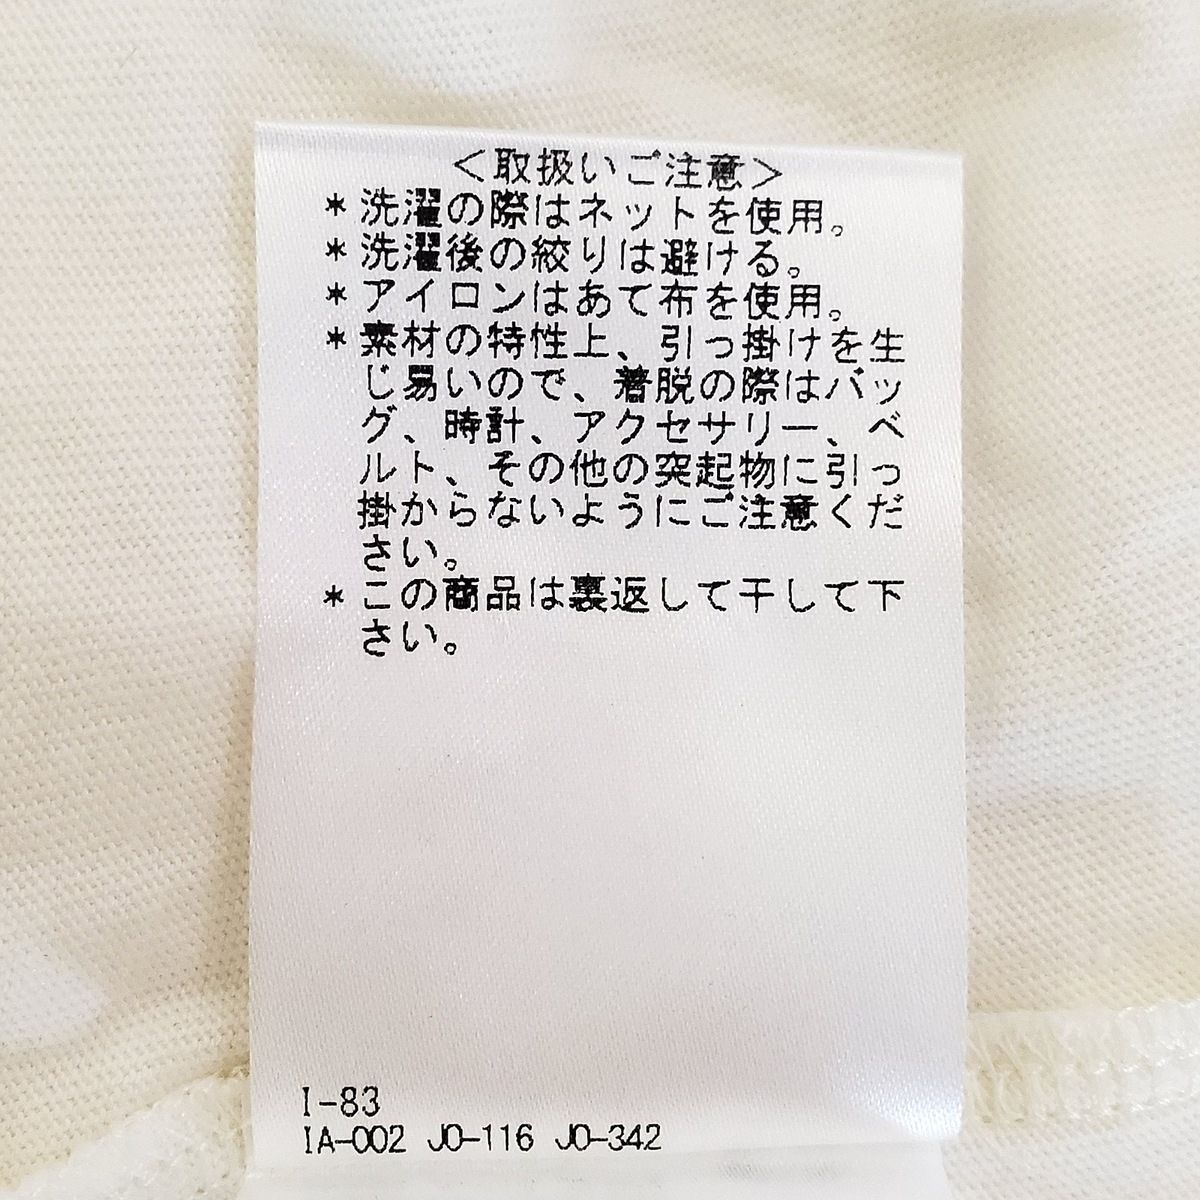 ＜取扱いご注意＞
＊洗濯の際はネットを使用。
＊洗濯後の絞りは避ける。
＊アイロンはあて布を使用。
＊素材の特性上、引っ掛けを生
じ易いので、着脱の際はバッ
グ、時計、アクセサリー、ベ
ルト、その他の突起物に引っ
掛からないようにご注意くだ
さい。
＊この商品は裏返して干して下
さい。
I-83
IA-002 JO-116 JO-342